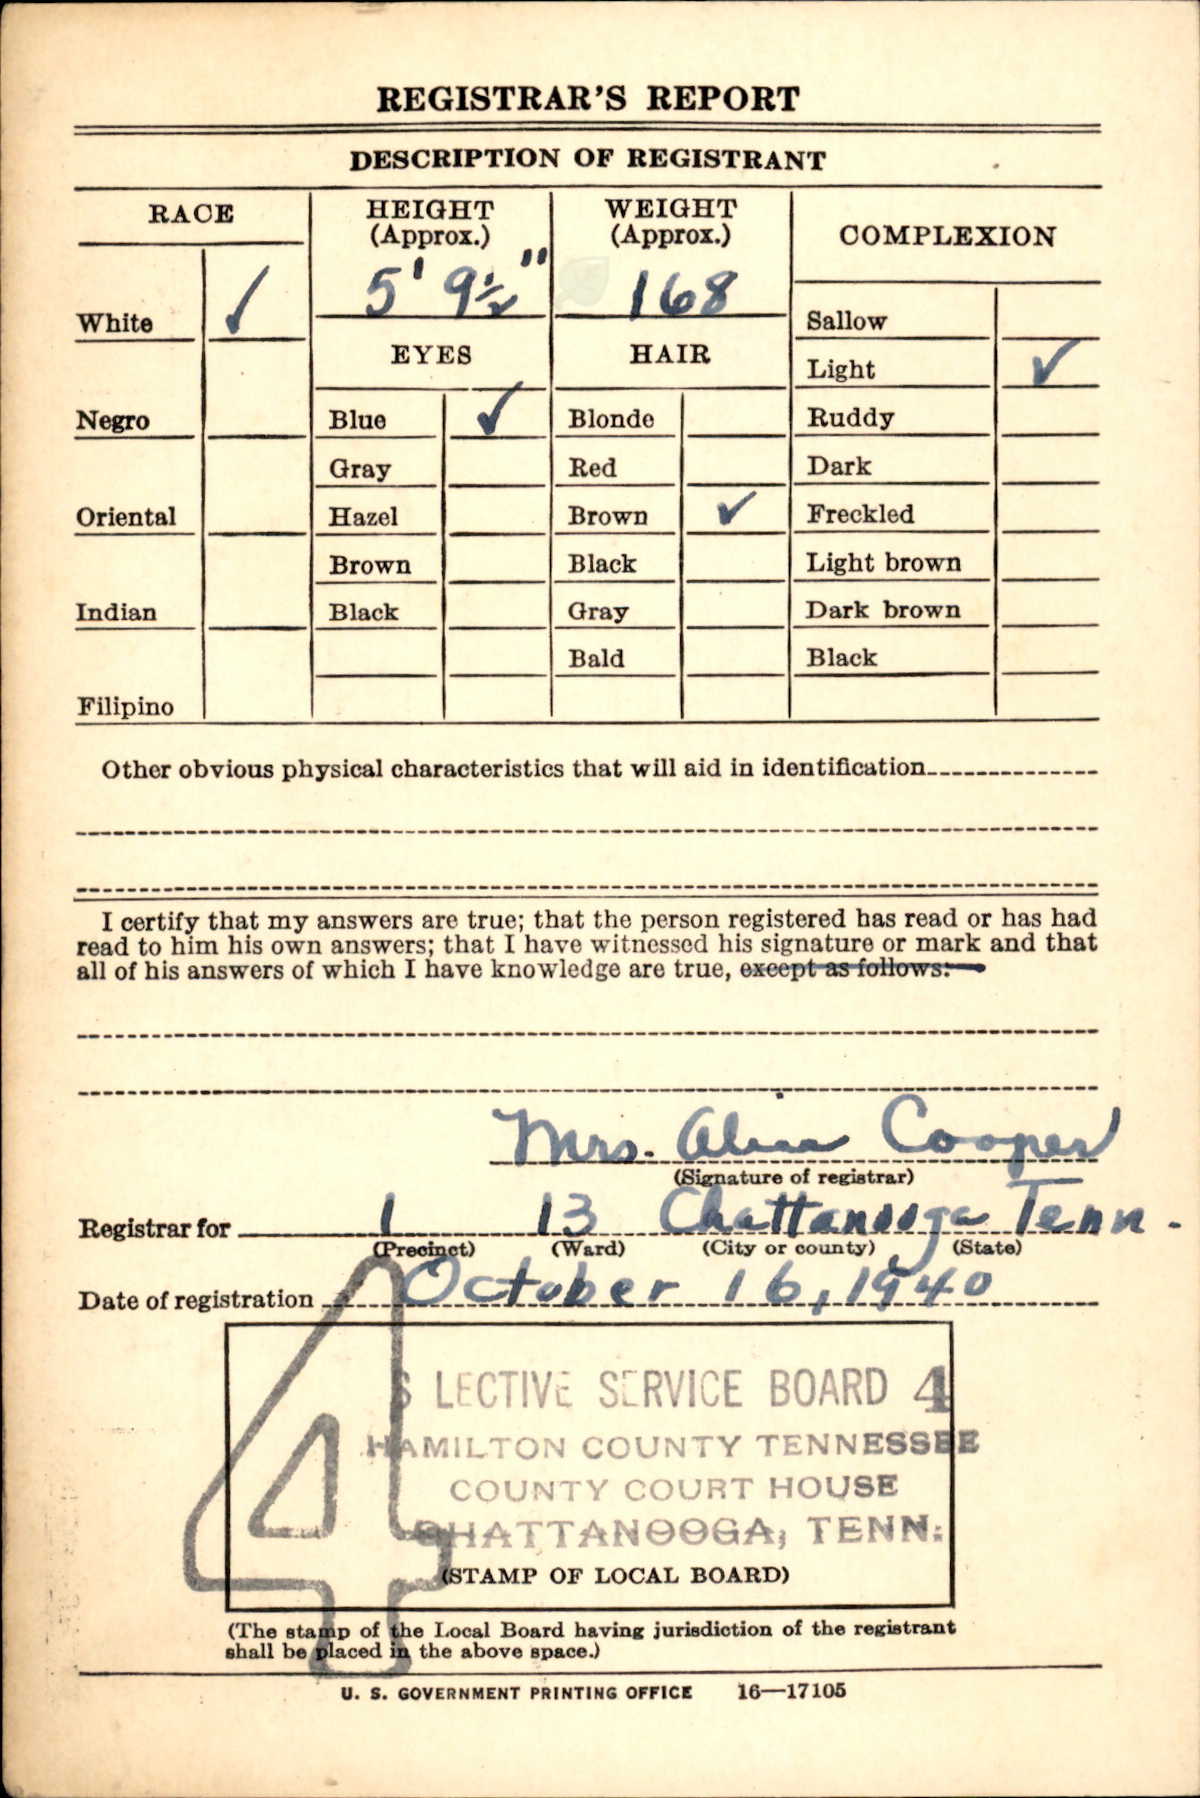 REGISTRAR'S REPORT
DESCRIPTION OF REGISTRANT
RACE
White ✓
Negro
Oriental
Indian
Filipino
HEIGHT
(Approx.)
5' 9½"
WEIGHT
(Approx.)
168
EYES
Blue ✓
Gray
Hazel
Brown
Black
HAIR
Blonde
Red
Brown ✓
Black
Gray
Bald
COMPLEXION
Sallow
Light ✓
Ruddy
Dark
Freckled
Light brown
Dark brown
Black
Other obvious physical characteristics that will aid in identification
I certify that my answers are true; that the person registered has read or has had
read to him his own answers; that I have witnessed his signature or mark and that
all of his answers of which I have knowledge are true, except as follows:
Mrs. Cooper
(Signature of registrar)
Registrar for 1 13 Chattanooga Tenn.
(Precinct) (Ward) (City or county) (State)
Date of registration October 16, 1940
4
S LECTIVE SERVICE BOARD 4
HAMILTON COUNTY TENNESSEE
COUNTY COURT HOUSE
CHATTANOOGA, TENN.
(STAMP OF LOCAL BOARD)
(The stamp of the Local Board having jurisdiction of the registrant
shall be placed in the above space.)
U. S. GOVERNMENT PRINTING OFFICE 16—17105